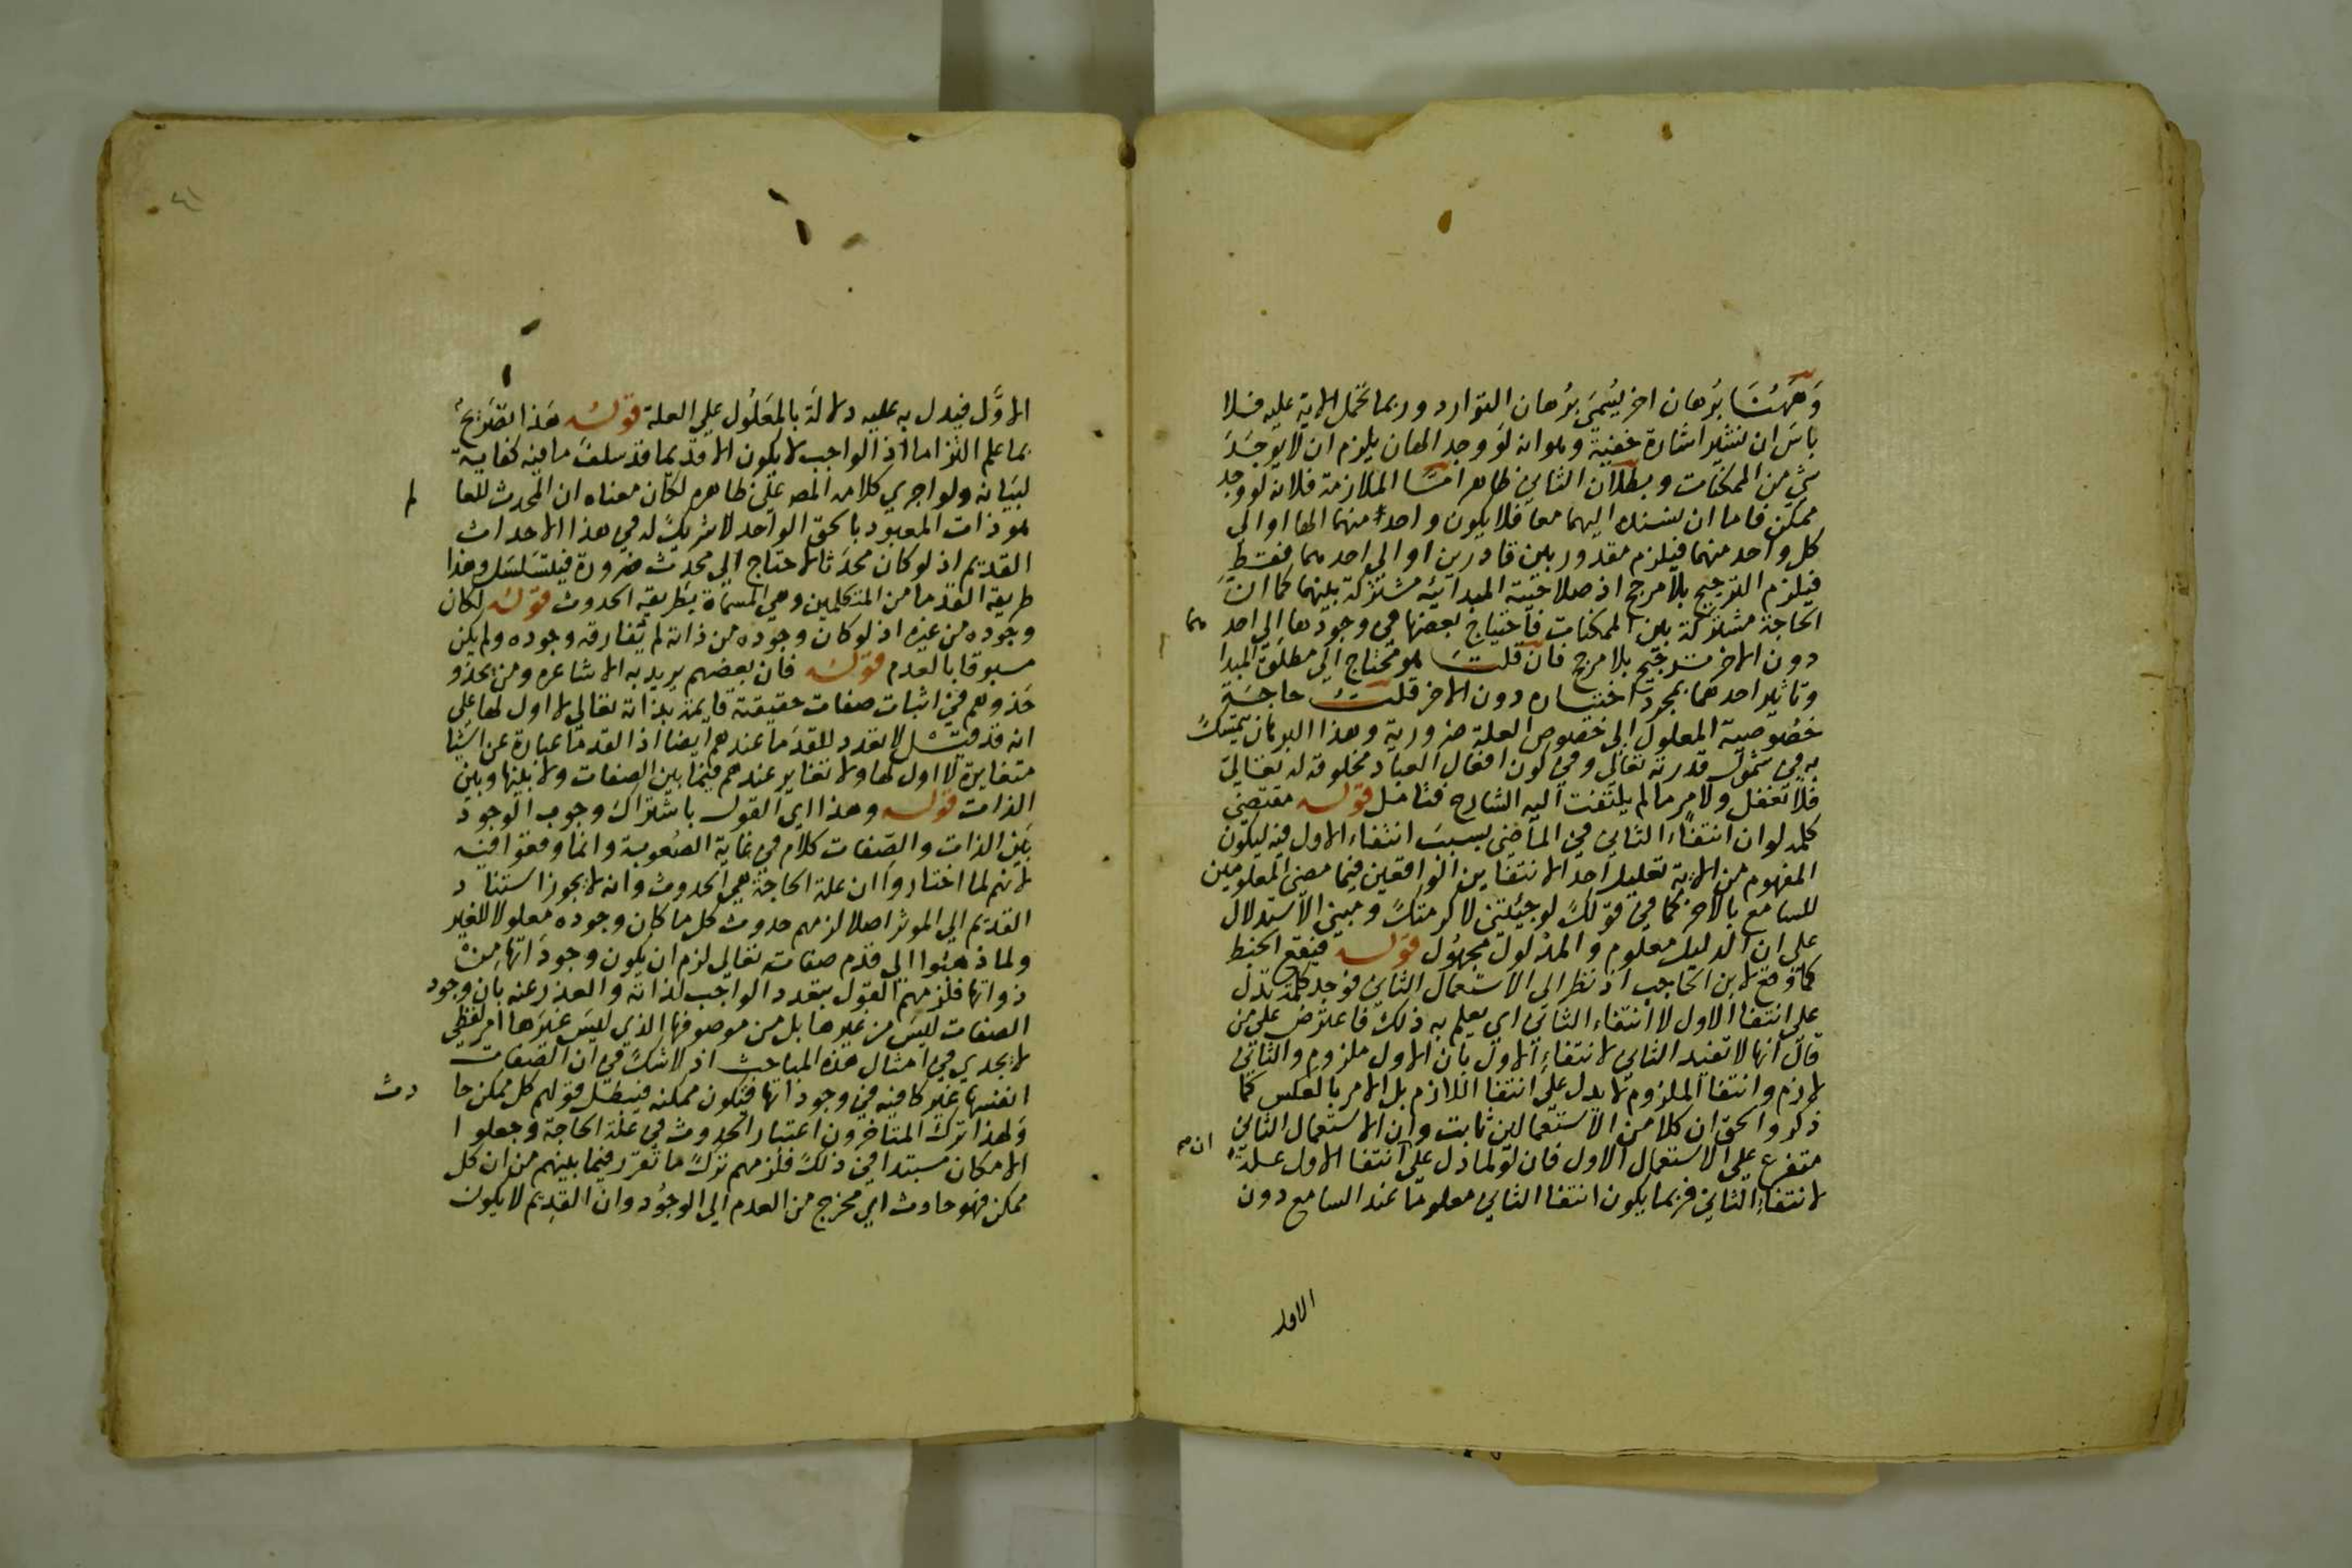 وههنا برهان اخر يسمي برهان التوارد وربما تحمل الاية عليه فلا
باس ان نشير اشارة خفية وهوانه لو وجد الهان يلزم ان لا يوجد
شي من الممكنات وبطلان الثاني ظاهر امّا الملازمة فلانه لو وجد
ممكن فاما ان يستند اليهما معا فلا يكون واحد منهما الها او الي
كل واحد منهما فيلزم مقدور بين قادرين او الي احدهما فقط
فيلزم الترجيح بلا مرجح اذ صلاحية المبدائية مشتركة بينهما كما ان
الحاجة مشتركة بين الممكنات فاحتياج بعضها في وجودها الي احدهما
دون الاخر ترجيح بلا مرجح فان قلت هو محتاج الي مطلق المبدا
وتاثير احدهما بمجرد اختياره دون الاخر قلت حاجة
خصوصية المعلول الي خصوص العلة ضرورية وهذا البرهان يتمسك
به في شمول قدرته تعالي وفي كون افعال العباد مخلوقة له تعالي
فلا تغفل ولامر ما لم يلتفت اليه الشارح فتامل قوله مقتضي
كلمة لو ان انتفاء الثاني في الماضي بسبب انتفاء الاول فيه ليكون
المفهوم من الاية تعليل احد الانتفايين الواقعين فيما مضي المعلومين
للسامع بالاخر كما في قولك لو جئتني لاكرمتك ومبني الاستدلال
علي ان الدليل معلوم والمدلول مجهول قوله فيقع الخبط
كما وقع لابن الحاجب اذ نظر الي الاستعمال الثاني فوجد كلمة تدل
علي انتفا الاول لا انتفاء الثاني اي يعلم به ذلك فاعترض علي من
قال انها لا تفيد الثاني لانتفاء الاول بان الاول ملزوم والثاني
لازم وانتفا الملزوم لا يدل علي انتفا اللازم بل الامر بالعكس كما
ذكر والحق ان كلا من الاستعمالين ثابت وان الاستعمال الثاني
متفرع علي الاستعمال الاول فان لو لما دل علي ان انتفا الاول علة
لانتفاء الثاني فربما يكون انتفا الثاني معلوما عند السامع دون
الاول
الاوّل فيدل به عليه دلالة بالمعلول علي العلة قوله هذا تصريح
بما علم التزاما اذ الواجب لا يكون الا قديما قد سلف ما فيه كفاية
لبيانه ولو اجري كلام المص علي ظاهره لكان معناه ان المحدث للعالم
هو ذات المعبود بالحق الواحد لا شريك له في هذا الاحداث
القديم اذ لو كان محدثا لاحتاج الي محدث ضرورة فيتسلسل وهذا
طريقة القدما من المتكلمين وهي المسماة بطريقة الحدوث قوله لكان
وجوده من غيره اذ لو كان وجوده من ذاته لم يفارقه وجوده ولم يكن
مسبوقا بالعدم قوله فان بعضهم يريد به الاشاعره ومن يحذو
حذوهم في اثبات صفات حقيقية قايمة بذاته تعالي لا اول لها علي
انه قد قيل لا تعدد للقدما عندهم ايضا اذ القدما عبارة عن اشيا
متغايرة لا اول لها ولا تغاير عندهم فيما بين الصفات ولا بينها وبين
الذات قوله وهذا اي القول باشتراك وجوب الوجود
بين الذات والصفات كلام في غاية الصعوبة وانما وقعوا فيه
لانهم لما اختاروا ان علة الحاجة هي الحدوث وانه لا يجوز استناد
القديم الي الموثر اصلا لزمهم حدوث كل ما كان وجوده معلولا للغير
ولما ذهبوا الي قدم صفات تعالي لزم ان يكون وجوداتها من
ذواتها فلزمهم القول بتعدد الواجب لذاته والعذر عنه بان وجود
الصفات ليس من غيرها بل من موصوفها الذي ليس غيرها امر لفظي
لا يجدي في امثال هذه المباحث اذ لا شك في ان الصفات
انفسها غير كافية في وجوداتها فتكون ممكنة فيبطل قولهم كل ممكن حادث
ولهذا ترك المتاخرون اعتبار الحدوث في علة الحاجة وجعلوا
الامكان مستبدا في ذلك فلزمهم ترك ما تقرر فيما بينهم من ان كل
ممكن فهو حادث اي مخرج من العدم الي الوجود وان القديم لا يكون